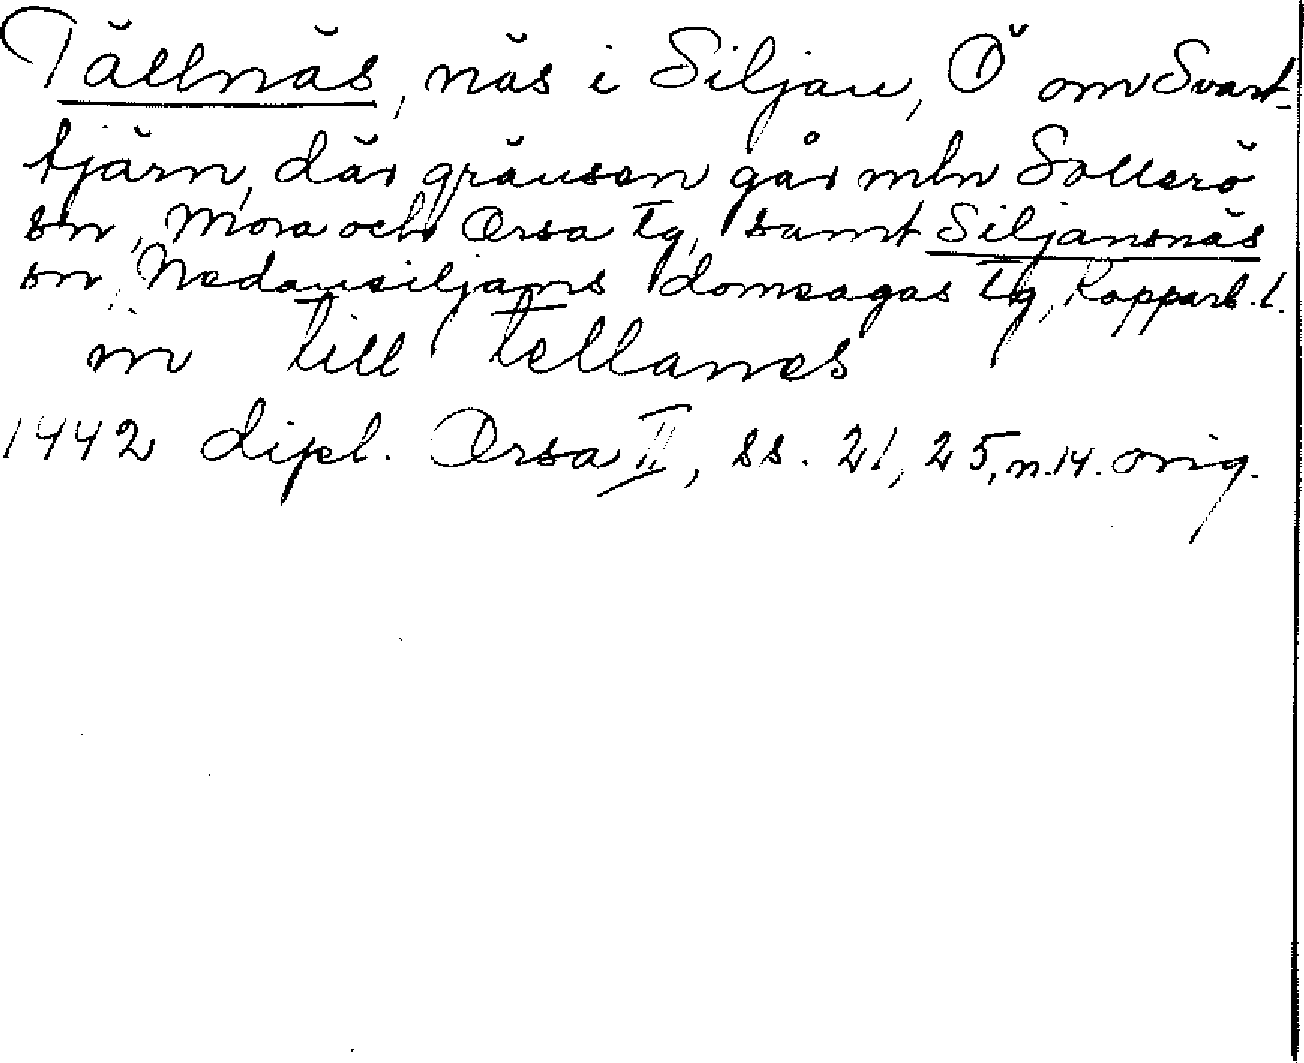 Tällnäs, näs i Siljan, Ö om Svart-
tjärn, där gränsen går mln Sollerö
sn, Mora och Orsa tg, samt Siljansnäs
sn, Nedansiljans domsagas tg, Kopparb. l.
in till tellanes
1442 dipl. Orsa II, ss. 21, 25, n. 14. orig.